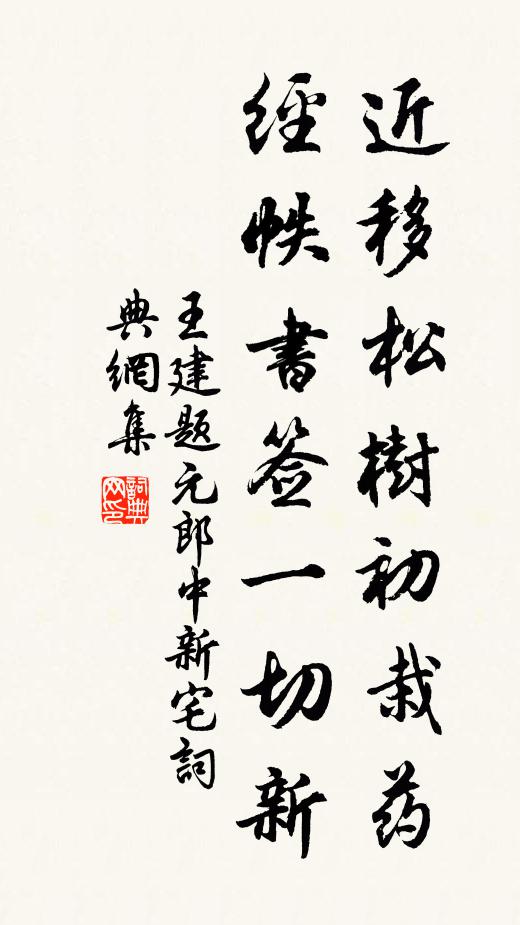 近移松樹初栽药
經帙書签一切新
王建题元郎中新宅詞
典網集
詞典网印